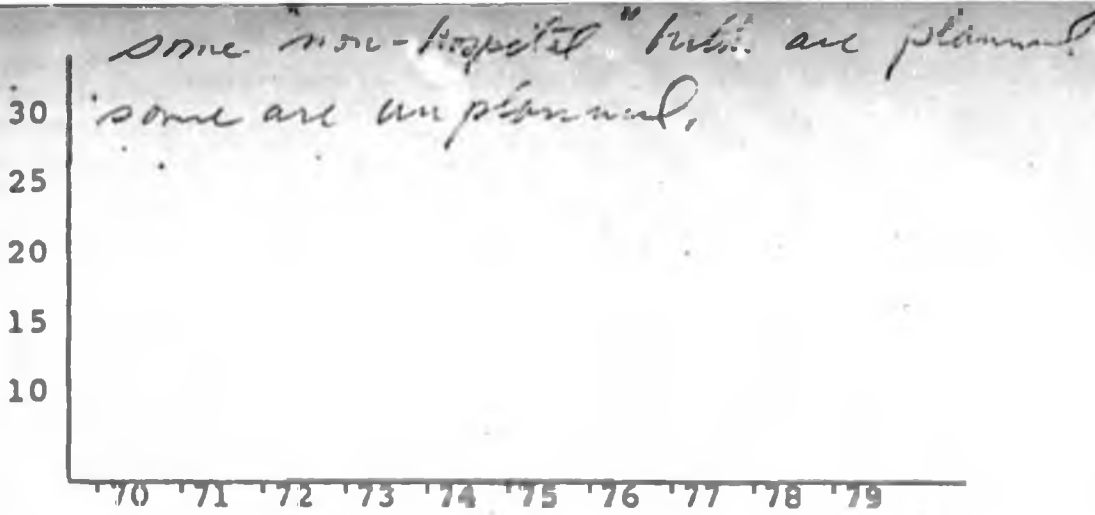 some "non-hospital" births are planned
some are unplanned.
30
25
20
15
10
'70 '71 '72 '73 '74 '75 '76 '77 '78 '79